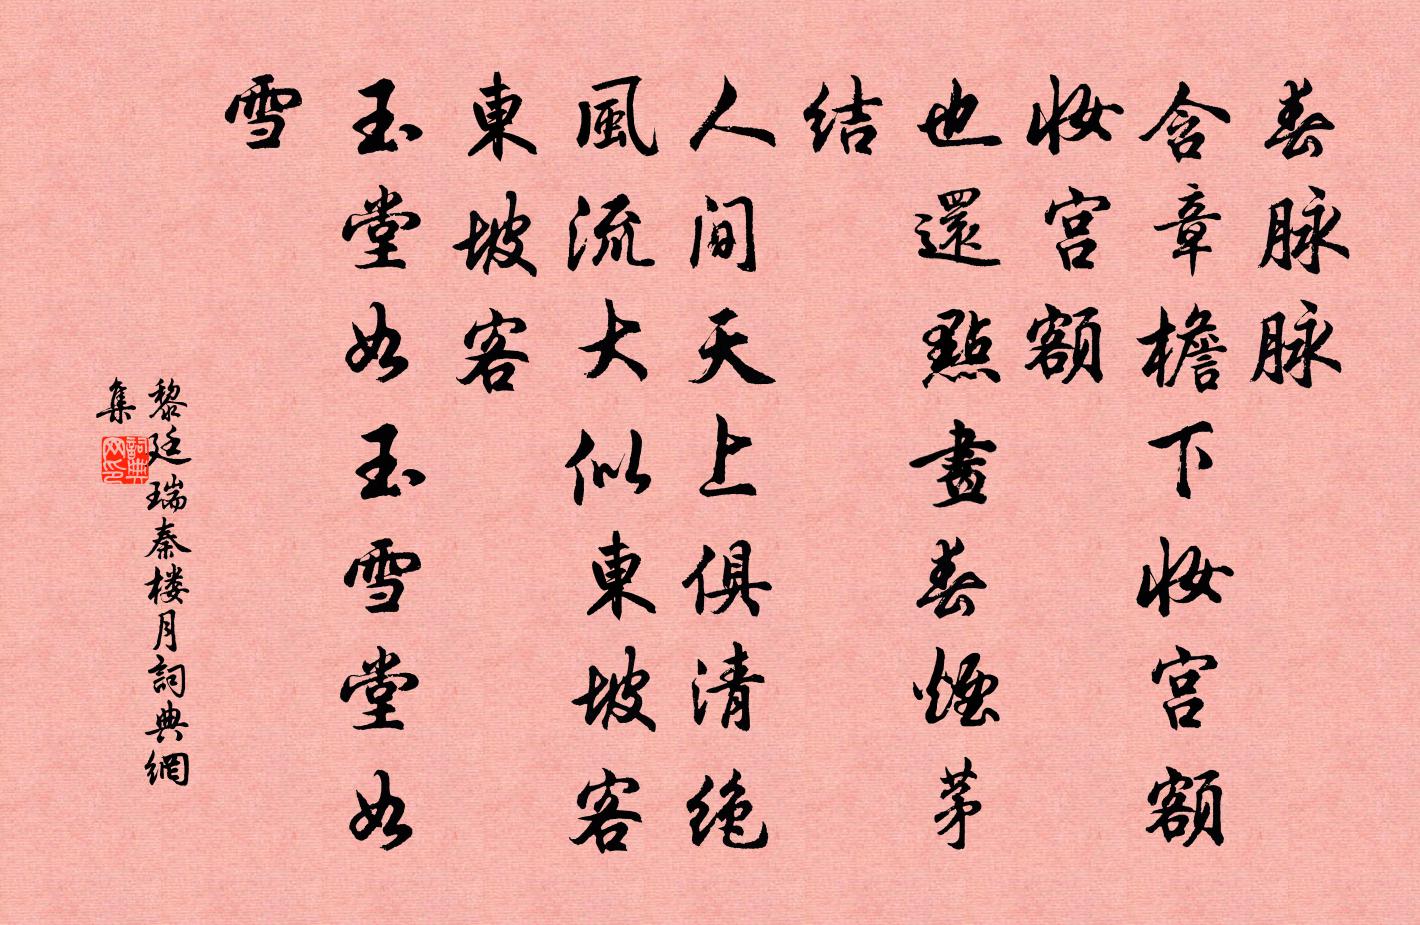 春脉脉
含章檐下妆宫额
妆宫额
也還點畫春煙茅
结
人间天上俱清绝
風流大似東坡客
東坡客
玉堂如玉雪堂如
雪
黎廷瑞秦楼月詞典網
集
詞典
网印